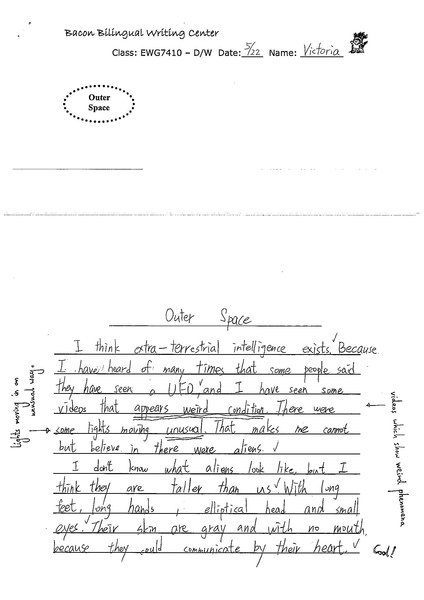 Bacon Bilingual Writing Center
Class: EWG7410 – D/W Date: 5/22 Name: Victoria
Outer
Space
Outer Space
I think extra-terrestrial intelligence exists. Because
I have heard of many times that some people said
they have seen a UFO, and I have seen some
videos that appears weird condition. There were
some lights moving unusual. That makes me cannot
but believe in there were aliens.
I don't know what aliens look like, but I
think they are taller than us. With long
feet, long hands, elliptical head and small
eyes. Their skin are gray and with no mouth,
because they could communicate by their heart.
Good!
videos which show weird phenomena
lights moving in an
unusual manner